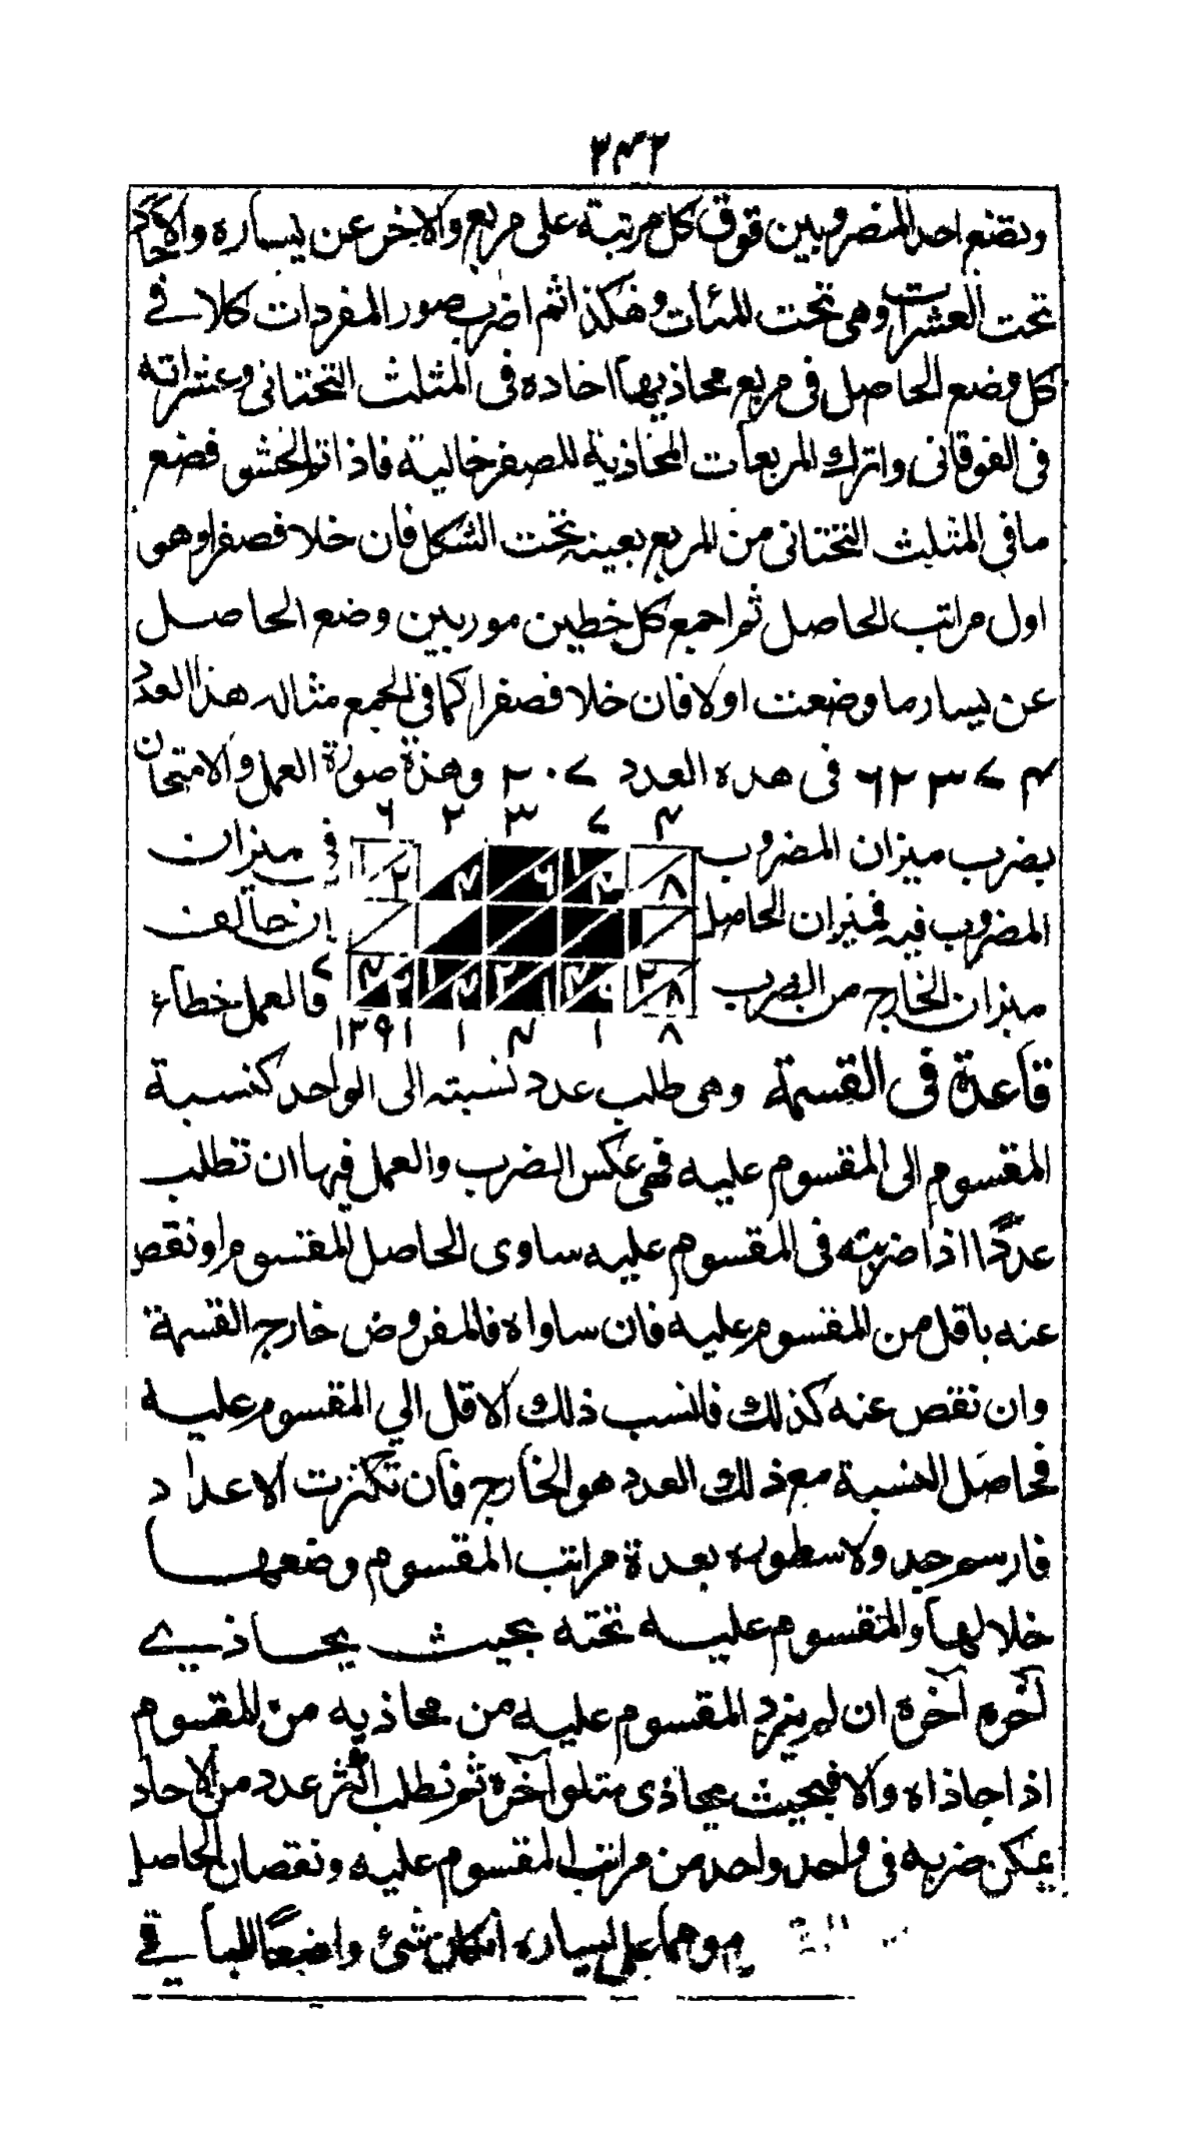 ٢٤٢
وتضع احد المضروبين فوق كل مرتبة على مربع والاخر عن يساره والاحاد
تحت العشرات وهى تحت المئات وهكذا ثم اضرب صور المفردات كلا فے
كل وضع الحاصل فى مربع محاذيهما احاده فى المثلث التحتانى وعشراته
فى الفوقانى واترك المربعات المحاذية للصفر خالية فاذا تم الحشو فضع
ما فى المثلث التحتانى من المربع بعينه تحت الشكل فان خلا فصفرا وهو
اول مراتب الحاصل ثم اجمع كل خطين موربين وضع الحاصل
عن يسار ما وضعت اولا فان خلا فصفرا كما فى الجمع مثاله هذا العدد
٦٢٣٧٤ فى هذه العدد ٢٠٧ وهذة صورة العمل والامتحان
٦ ٢ ٣ ٧ ٤
بضرب ميزان المضروب فى ميزان
المضروب فيه فميزان الحاصل ان خالف
ميزان الخارج من الضرب فالعمل خطاء
١٢٩١ ١ ٤ ١ ٨
قاعدة فى القسمة وهى طلب عدد نسبته الى الواحد كنسبة
المقسوم الى المقسوم عليه فهى عكس الضرب والعمل فيها ان تطلب
عددًا اذا ضربته فى المقسوم عليه ساوى الحاصل المقسوم او نقص
عنه باقل من المقسوم عليه فان ساواه فالمفروض خارج القسمة
وان نقص عنه كذلك فانسب ذلك الاقل الي المقسوم عليه
فحاصل النسبة مع ذلك العدد هو الخارج فان تكثرت الاعداد
فارسم جدولا سطوره بعدة مراتب المقسوم وضعها
خلالها والمقسوم عليه تحته بحيث يحاذے
آخره آخره ان لم يزد المقسوم عليه من محاذيه من المقسوم
اذا حاذاه والا فبحيث يحاذى متلو آخره ثم تطلب اكثر عدد من الاحاد
يمكن ضربه فى واحد واحد من مراتب المقسوم عليه ونقصان الحاصل
على يساره ان كان شئ واضعًا للباقے